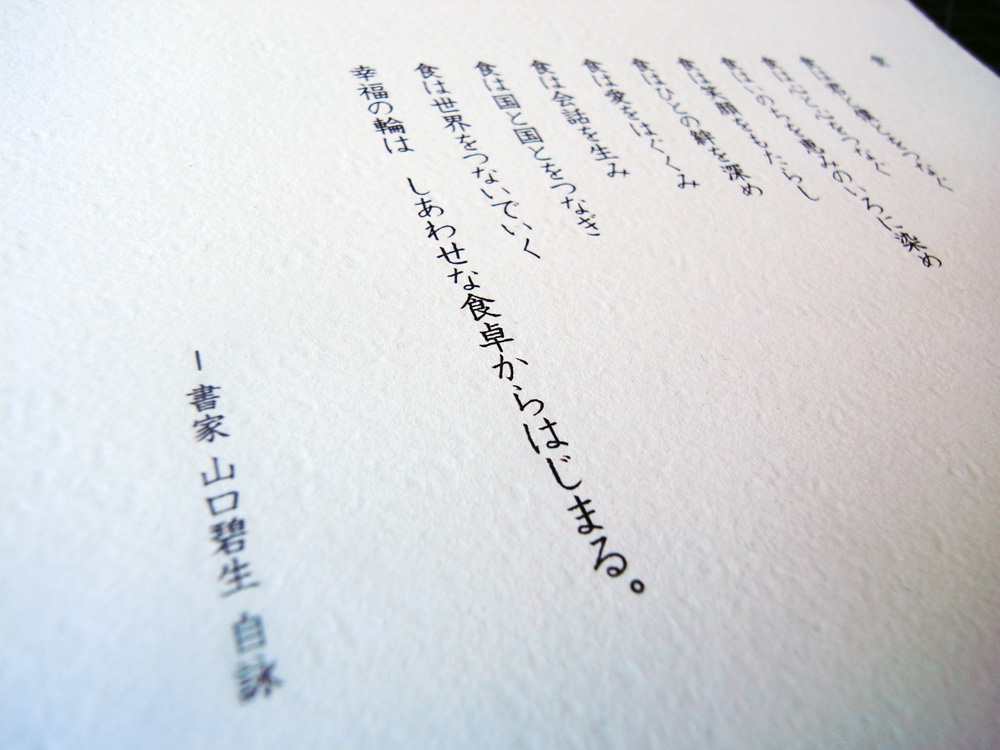 食
食は君と僕とをつなぐ
食は心と心をつなぐ
食はいのちを恵みのいろに染め
食は笑顔をもたらし
食はひとの絆を深め
食は愛をはぐくみ
食は会話を生み
食は国と国とをつなぎ
食は世界をつないでいく
幸福の輪は しあわせな食卓からはじまる。
ー書家 山口碧生 自詠